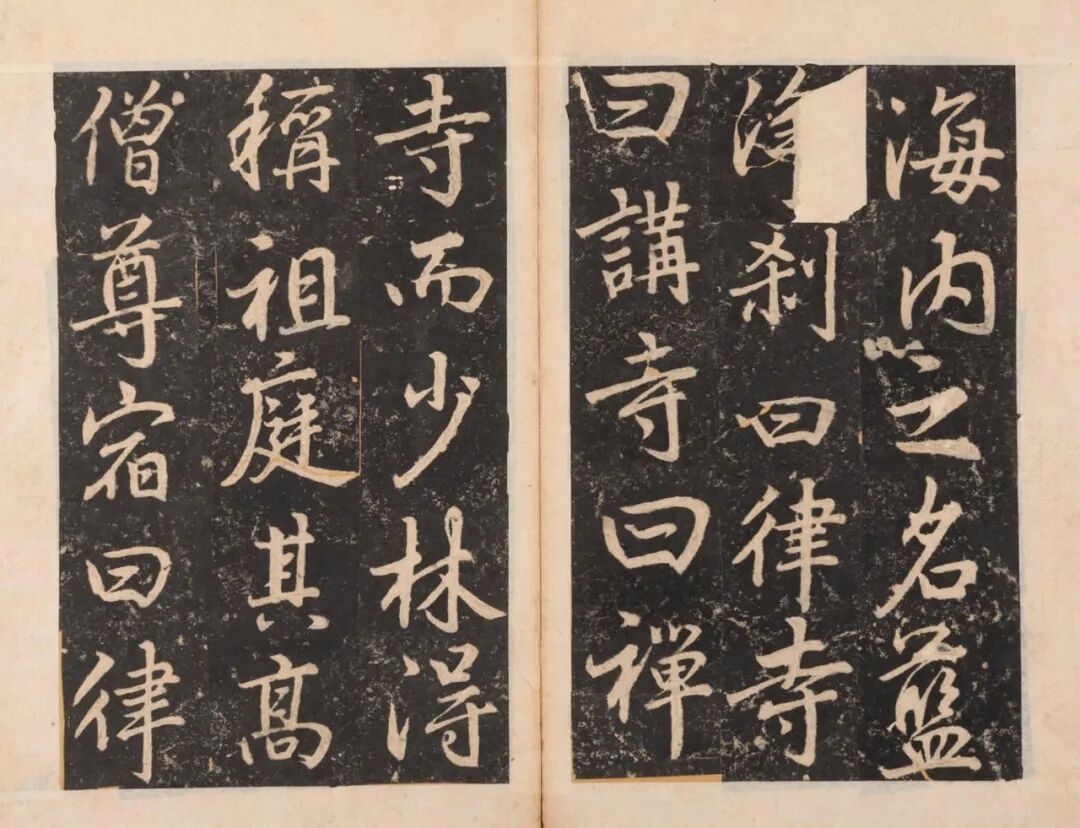 海内之名藍
刹曰律寺
曰講寺曰禅
寺而少林得
稱祖庭其髙
僧尊宿曰律